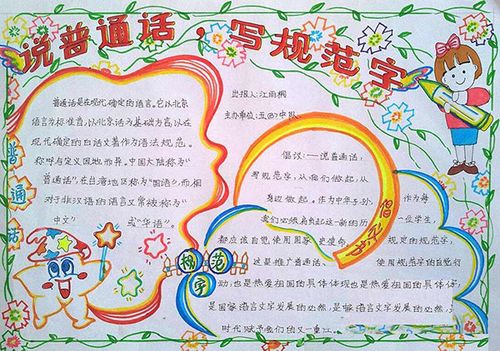 说普通话,写规范字
普通话
普通话是在现代确定的语言。它以北京
语言为标准音,以北京话为基础方言,以在
现代确定的白话文著作为语法规范。
称呼与定义因地而异。中国大陆称为"
普通话",在台湾地区称为"国语",而相
对于非汉语的语言又常被称为"
中文" 或"华语"。
出报人:江雨桐
主办单位:五(3)中队
倡议:——说普通话,
写规范字,从我们做起,从
身边做起。作为中华子孙, 作为每
我们必须肩负起这一新的历 一位学生,
都应该自觉使用国家 规定的规范字,
这是推广普通话、 使用规范字的自觉行
动,也是热爱祖国的具体体现也是热爱祖国的具体体
是国家语言文字发展的必然,是 语言文字发展的必然,是
时代赋予我们的又一重任。
倡议书
规范字